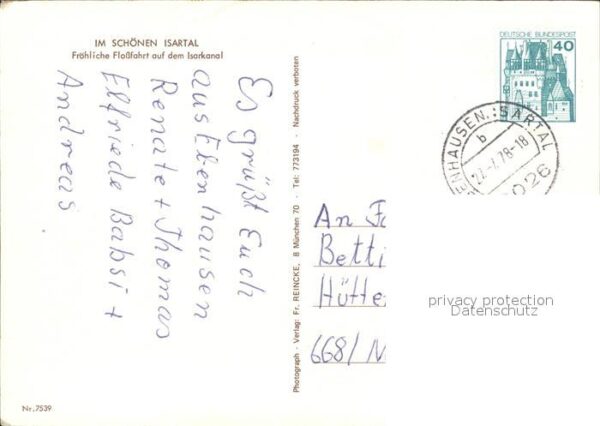 IM SCHÖNEN ISARTAL
Fröhliche Floßfahrt auf dem Isarkanal
Es grüßt Euch
aus Ebenhausen
Renate + Thomas
Elfriede Babsi +
Andreas
Nr. 7539
Photograph · Verlag: Fr. REINCKE, 8 München 70 · Tel: 773194 · Nachdruck verboten
DEUTSCHE BUNDESPOST
40
ENHAUSEN (ISARTAL
b
27.-7.78-18
8026
An Fa
Betti
Hütte
668/ N
privacy protection
Datenschutz